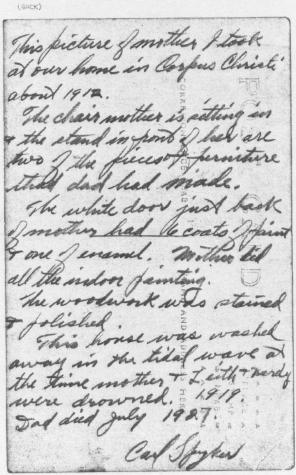 (BACK)
This picture of mother I took
at our home in Corpus Christi
about 1912.
The chair mother is sitting in
& the stand in front of her are
two of the pieces of furniture
that dad had made.
The white door just back
of mother had 6 coats of paint
& one of enamel. Mother did
all the indoor painting.
The woodwork was stained
& polished.
This house was washed
away in the tidal wave at
the time mother & Lith & nardy
were drowned. 1919.
Dad died July 1927.
Carl Spyker